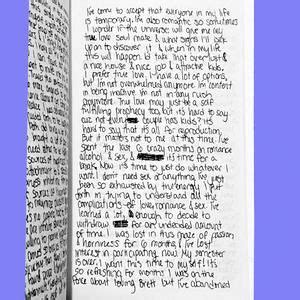 I've come to accept that everyone in my life
is temporary. I'm also romantic so sometimes
I wonder if the universe will give me my
true love soul mate & what signs I'll pick
upon to discover it & when in my life
this will happen. I'd take that over lust &
a nice house & nice job & attractive kids.
I prefer true love. I have a lot of options,
but I'm not overwhelmed anymore. I'm comfort
in being inactive. I'm not in any rush
anymore. True love may just be a self
fulfilling prophecy too, but it's hard to say
cuz not every couple has kids. It's
hard to say that it's all for reproduction.
But it matters not to me at this time. I've
spent the last 6 crazy months on romance
alcohol & sex, & it's time for a
break. Now it's time to just do whatever I
want. I don't need sex or anything. I've just
been so exhausted by the energy I put
forth in trying to understand all the
complications of love, romance & sex. I've
learned a lot, & enough to decide to
withdraw for an undecided amount
of time. I was lost in this maze of passion
& horniness for 6 months & I've lost
interest in participating now. My semester
is over. I want this time to myself. It's
so refreshing. For months I was on the
fence about loving Brett but I've abandoned